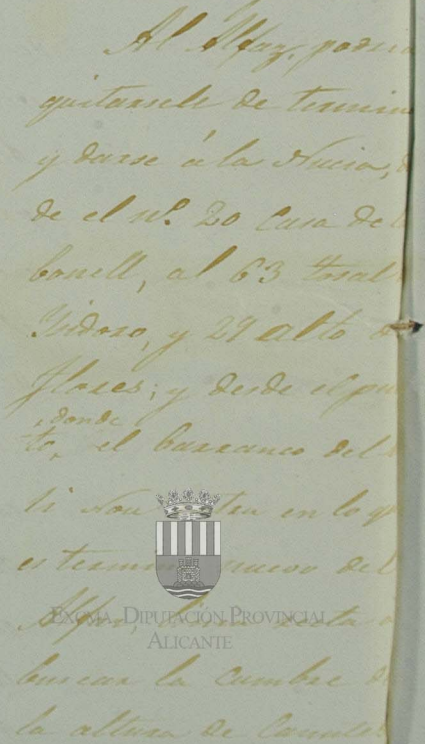 Al Alfaz, podria
quitarsele de termin
y darse á la Nucia, d
de el nº 20 Casa de
bonell, al 63 tosal
Ysidoro, y 29 alto d
flores; y desde el pu
donde
to, el barranco del
li Nou en lo q
es termino nuevo del
Alfaz,
buscar la cumbre d
la altura de
EXCMA. DIPUTACIÓN PROVINCIAL
ALICANTE